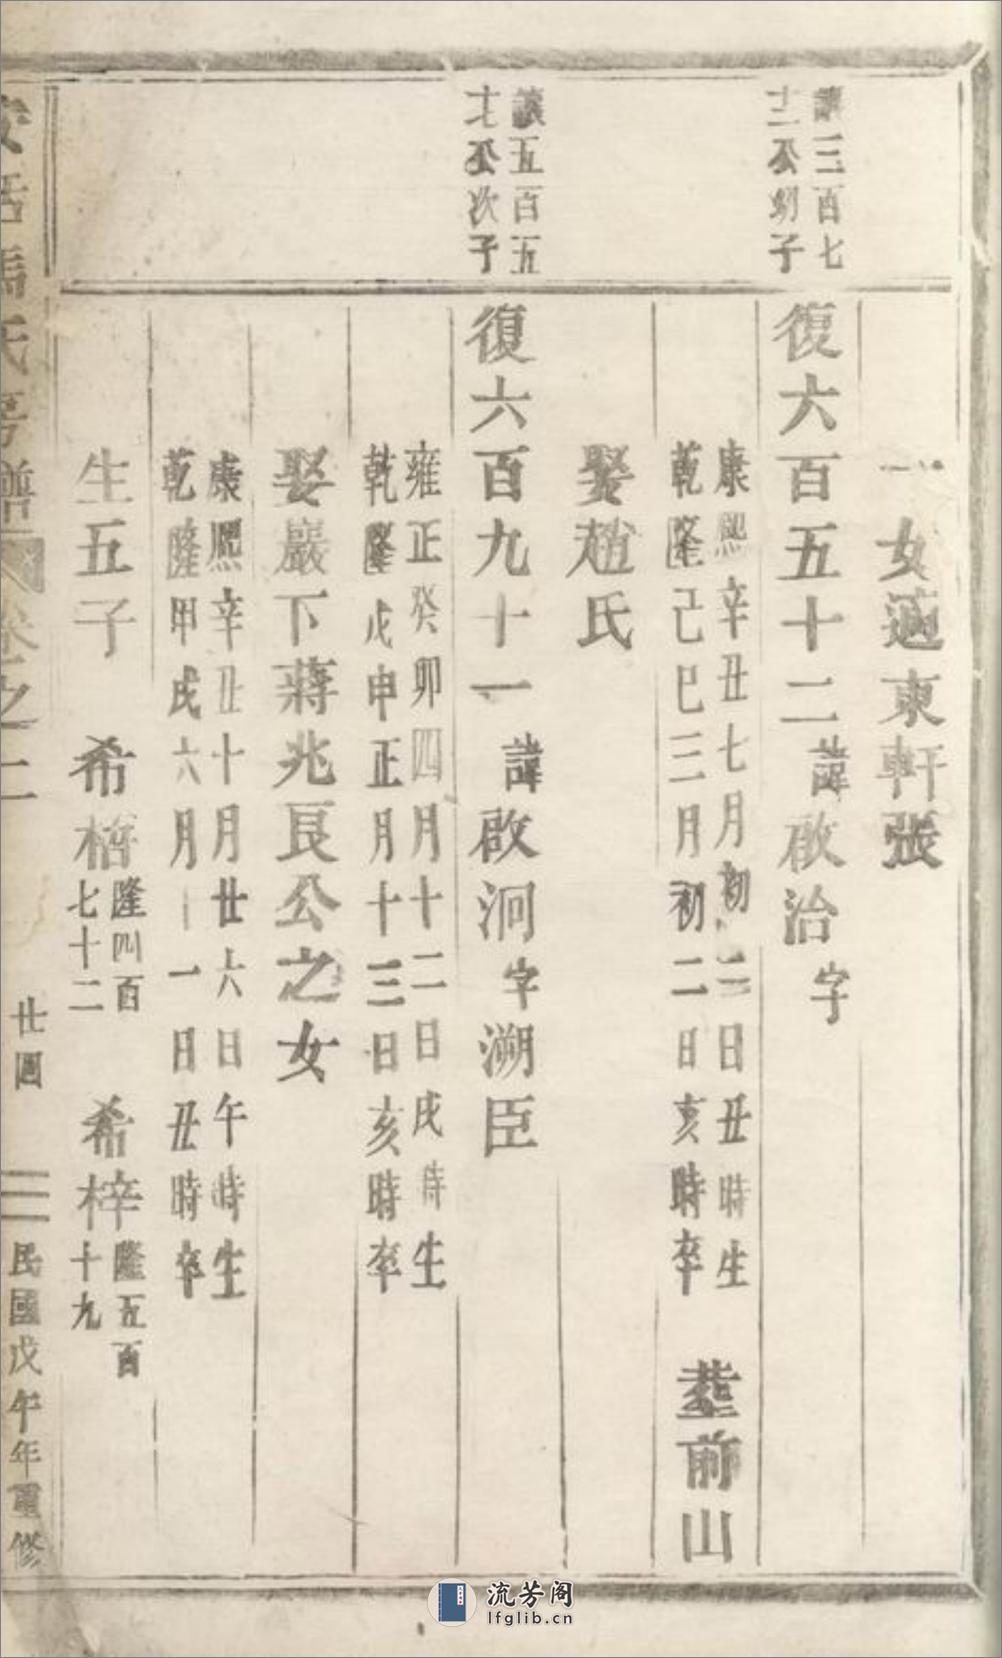 一女適東軒張
三百七
十二公子
復六百五十二諱啟治字
康熙辛丑七月初三日丑時生
乾隆己巳三月初二日亥時卒
塟前山
娶趙氏
五百五
十七公次子
復六百九十一諱啟泂字溯臣
雍正癸卯四月十二日戌時生
乾隆戊申正月十三日亥時卒
娶巖下蔣兆艮公之女
康熙辛丑十月廿六日午時生
乾隆甲戌六月十一日丑時卒
生五子
希
隆四百
七十二
希梓
隆五百
十九
氏宗譜
卷之二
廿四
民國戊午年重修
流芳阁
lfglib.cn